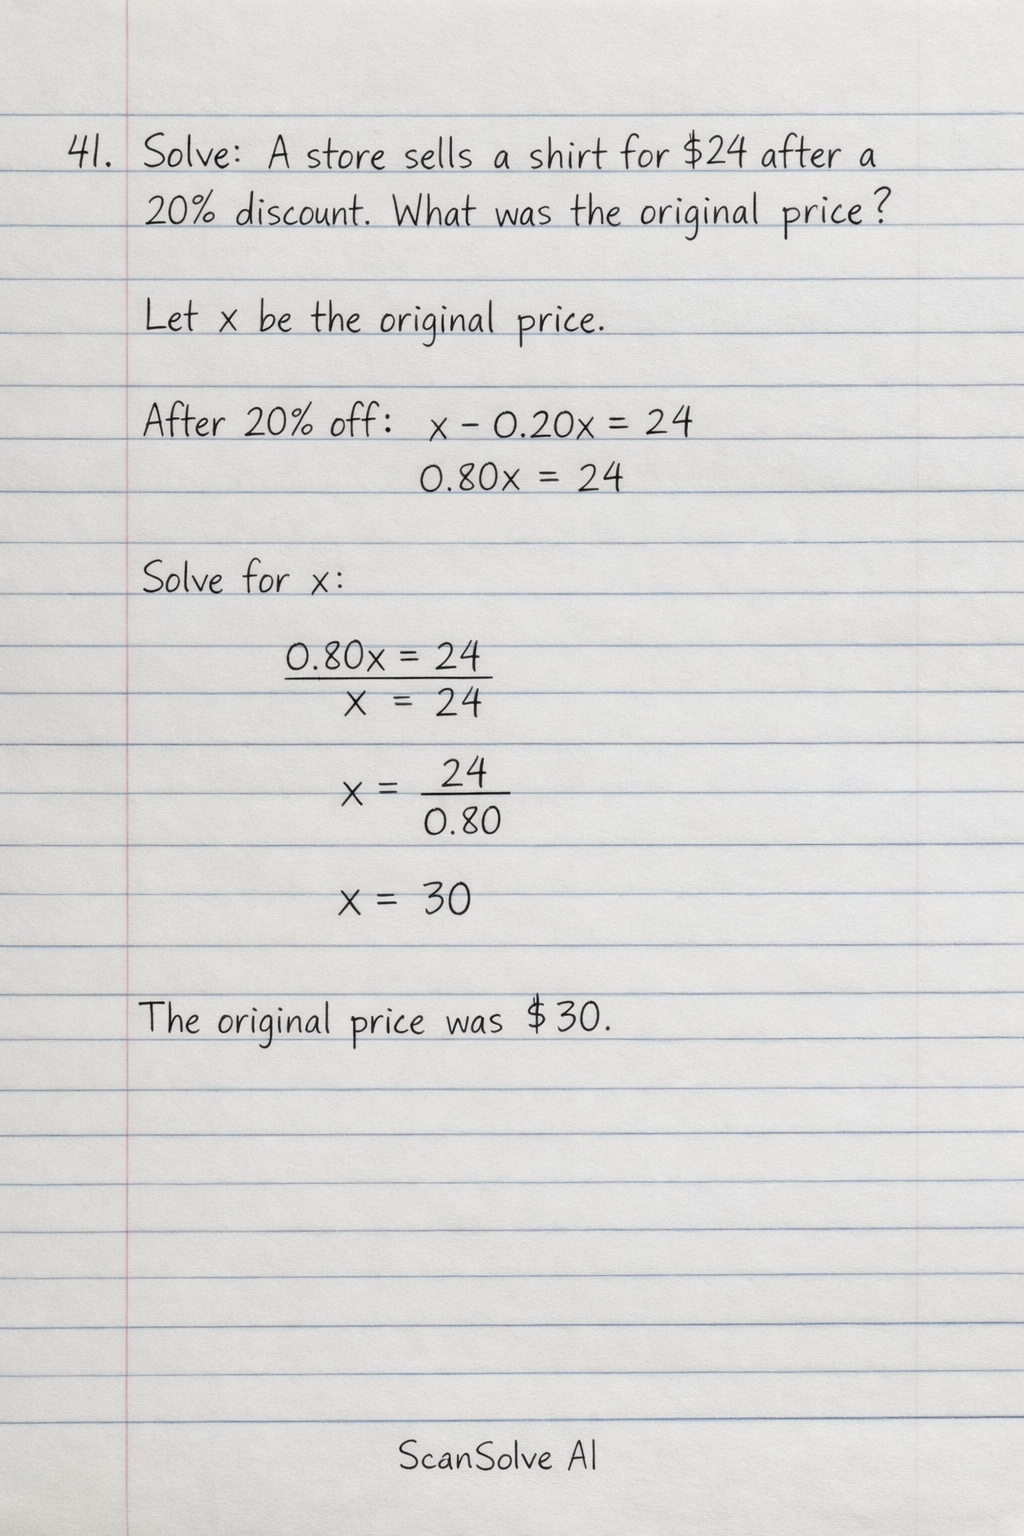 41. Solve: A store sells a shirt for $24 after a
20% discount. What was the original price?
Let x be the original price.
After 20% off: x - 0.20x = 24
0.80x = 24
Solve for x:
0.80x = 24
x = 24
x = 24
0.80
x = 30
The original price was $30.
ScanSolve AI